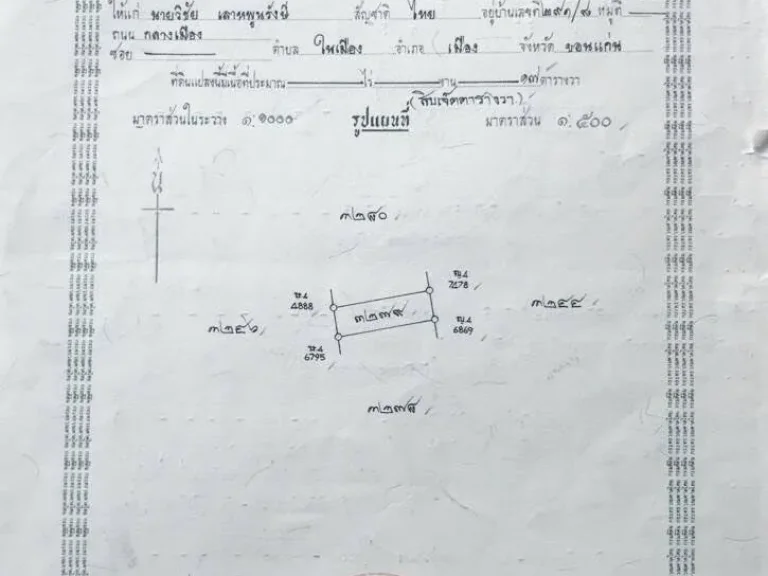 ให้แก่ นายวิชัย เลาหพูนรังษี สัญชาติ ไทย อยู่บ้านเลขที่ ๒๙๑/๘ หมู่ที่
ถนน กลางเมือง
ซอย ตำบล ในเมือง อำเภอ ( เมือง จังหวัด ขอนแก่น
ที่ดินแปลงนี้มีเนื้อที่ประมาณ ไร่ งาน ๑๗ ตารางวา
(สิบเจ็ดตารางวา)
มาตราส่วนในระวาง ๑:๑๐๐๐ รูปแผนที่ มาตราส่วน ๑:๕๐๐
น
๓๒๘๐
ญ.4
7478
ห.4
4888
๓๒๗๙
๓๒๕๕
ญ.4
6869
ห.4
6795
๓๒๗๘